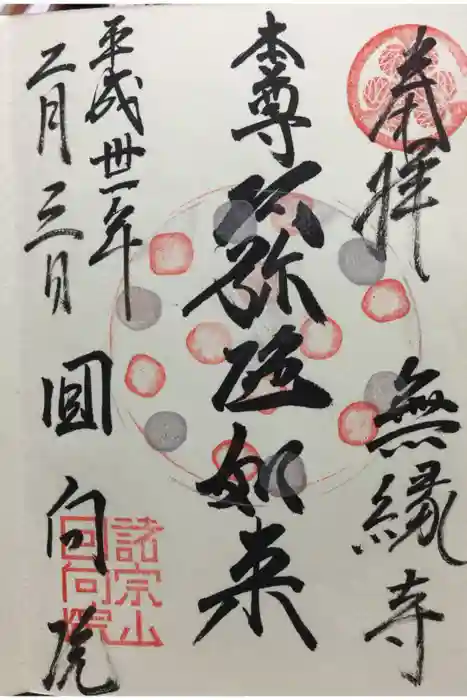 奉拝
無縁寺
本尊
阿弥陀如来
平成卅一年
二月三日
回向院
諸宗山
回向院